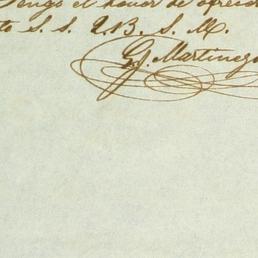 Tengo el honor de ofrecer
to S. S. Q. B. S. M.
G. Martinez